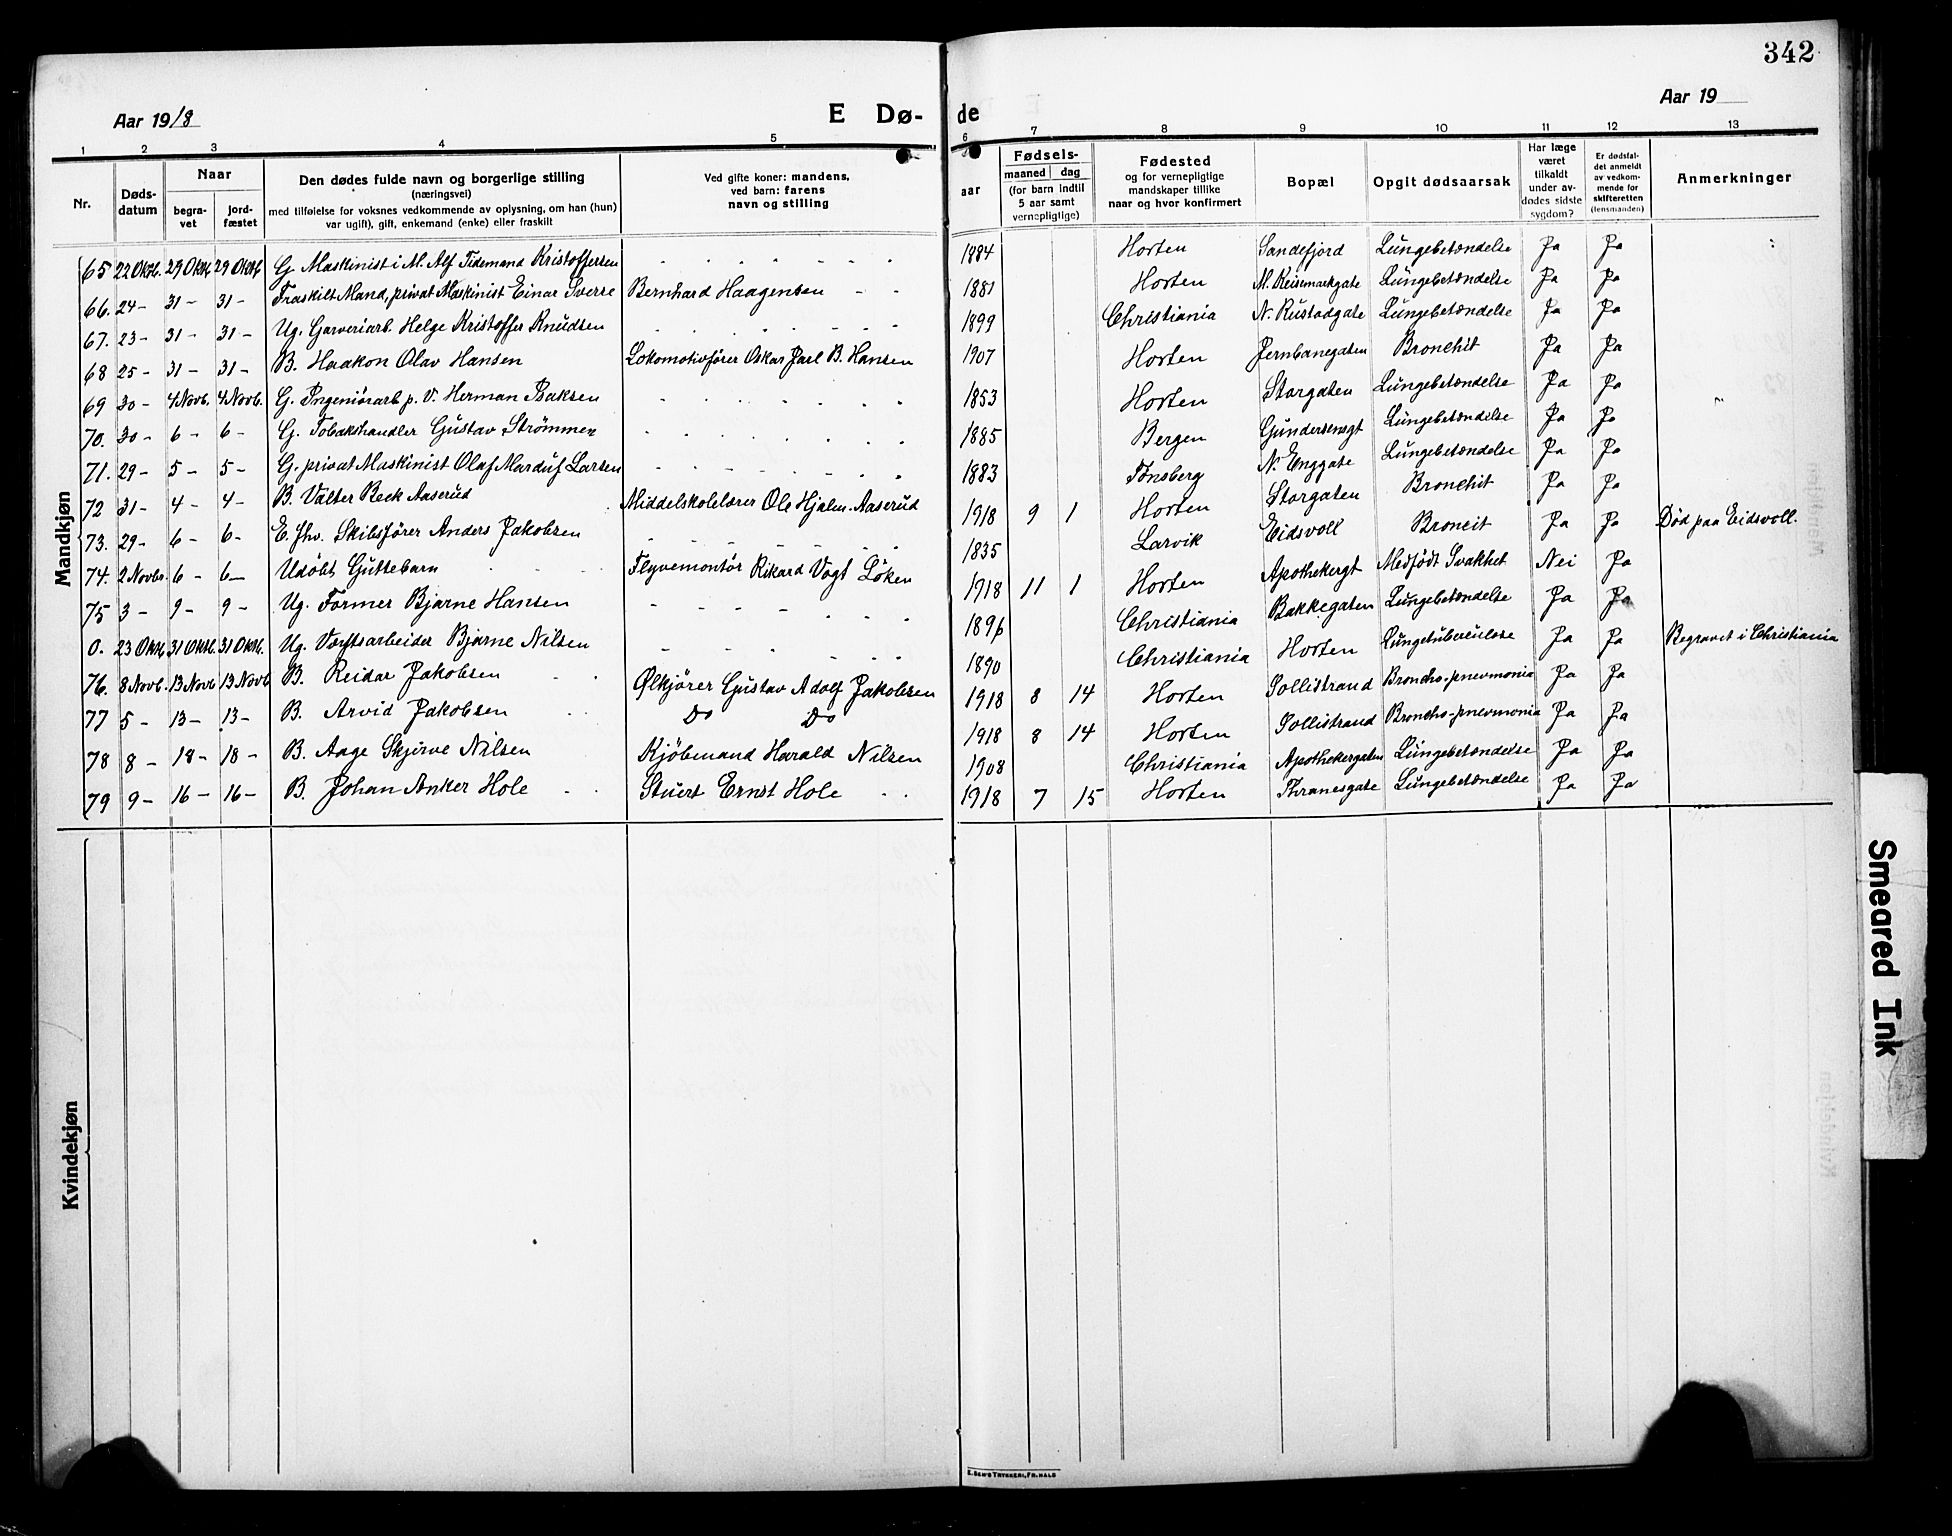 342
Aar 1918
E Dø-
de
Aar 19
1 2 3 4 5 6 7 8 9 10 11 12 13
Nr.
Døds-
datum
Naar
begra-
vet
jord-
fæstet
Den dødes fulde navn og borgerlige stilling
(næringsvei)
med tilføielse for voksnes vedkommende av oplysning, om han (hun)
var ugift), gift, enkemand (enke) eller fraskilt
Ved gifte koner: mandens,
ved barn: farens
navn og stilling
aar
Fødsels-
maaned dag
(for barn indtil
5 aar samt
vernepligtige)
Fødested
og for vernepligtige
mandskaper tillike
naar og hvor konfirmert
Bopæl
Opgit dødsaarsak
Har læge
været
tilkaldt
under av-
dødes sidste
sygdom?
Er dødsfal-
det anmeldt
av vedkom-
mende for
skifteretten
(lensmanden)
Anmerkninger
Mandkjøn
65 22 Oktb. 29 Oktb. 29 Oktb. G. Maskinist i M. Alf Tidemand Kristoffersen 1884 Horten Sandefjord Lungebetændelse Ja Ja
66. 24 - 31 - 31 - Fraskilt Mand, privat Maskinist Einar Sverre Bernhard Haagensen 1881 Horten N. Keisemarkgate Lungebetændelse Ja Ja
67. 23 - 31 - 31 - Ug. Garveriarb. Helge Kristoffer Knudsen 1899 Christiania N. Rustadgate Lungebetændelse Ja Ja
68 25 - 31 - 31 - B. Haakon Olav Hansen Lokomotivfører Oskar Jarl B. Hansen 1907 Horten Jernbanegaten Bronchit Ja Ja
69 30 - 4 Novb. 4 Novb. G. Ingeniørarb p. V. Herman Isaksen 1853 Horten Storgaten Lungebetændelse Ja Ja
70. 30 - 6 - 6 - G. Tobakshandler Gustav Strömmer 1885 Bergen Gundersensgt Lungebetændelse Ja Ja
71. 29 - 5 - 5 - G. privat Maskinist Olaf Marduf Larsen 1883 Tønsberg N. Enggate Lungebetændelse Ja Ja
72 31 - 4 - 4 - B. Valter Beck Aaserud Middelskolelærer Ole Hjalm. Aaserud 1918 9 1 Horten Storgaten Bronchit Ja Ja
73. 29 - 6 - 6 - E. fhv. Skibsfører Anders Jakobsen 1835 Larvik Eidsvoll Broncit Ja Ja Død paa Eidsvoll.
74. 2 Novbr. 6 - 6 - Udöbt Guttebarn Flyvemontör Rikard Vogt Löken 1918 11 1 Horten Apothekergt Medfödt Svakhet Nei Ja
75 3 - 9 - 9 - Ug. Former Bjarne Hansen 1896 Christiania Bakkegaten Lungebetændelse Ja Ja
0. 23 Oktb. 31 Oktb. 31 Oktb. Ug. Værftsarbeider Bjarne Nilsen 1890 Christiania Horten Lungetuberculose Ja Ja Begravet i Christiania
76. 8 Novb. 13 Novb 13 Novb B. Reidar Jakobsen Ølkjörer Gustav Adolf Jakobsen 1918 8 14 Horten Sollistrand Broncho-pnevmonia Ja Ja
77 5 - 13 - 13 - B. Arvid Jakobsen Do Do 1918 8 14 Horten Sollistrand Broncho-pnevmonia Ja Ja
78 8 - 18 - 18 - B. Aage Skjirve Nilsen Kjöbmand Harald Nilsen 1908 Christiania Apothekergaten Lungebetændelse Ja Ja
79 9 - 16 - 16 - B. Johan Anker Hole Stuert Ernst Hole 1918 7 15 Horten Thranesgate Lungebetændelse Ja Ja
Kvindekjøn
Smeared Ink
E. SEM'S TRYKKERI, FR.HALD